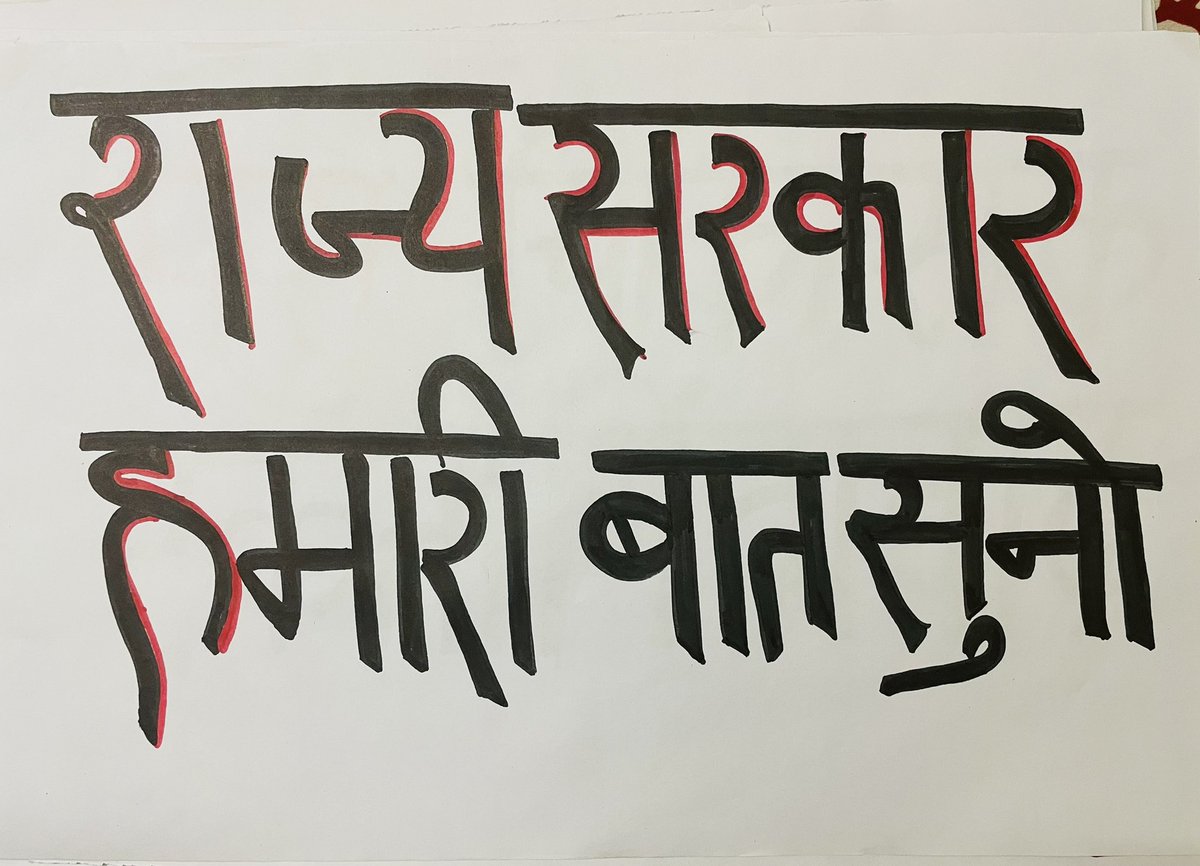 राज्य सरकार
हमारी बात सुनो